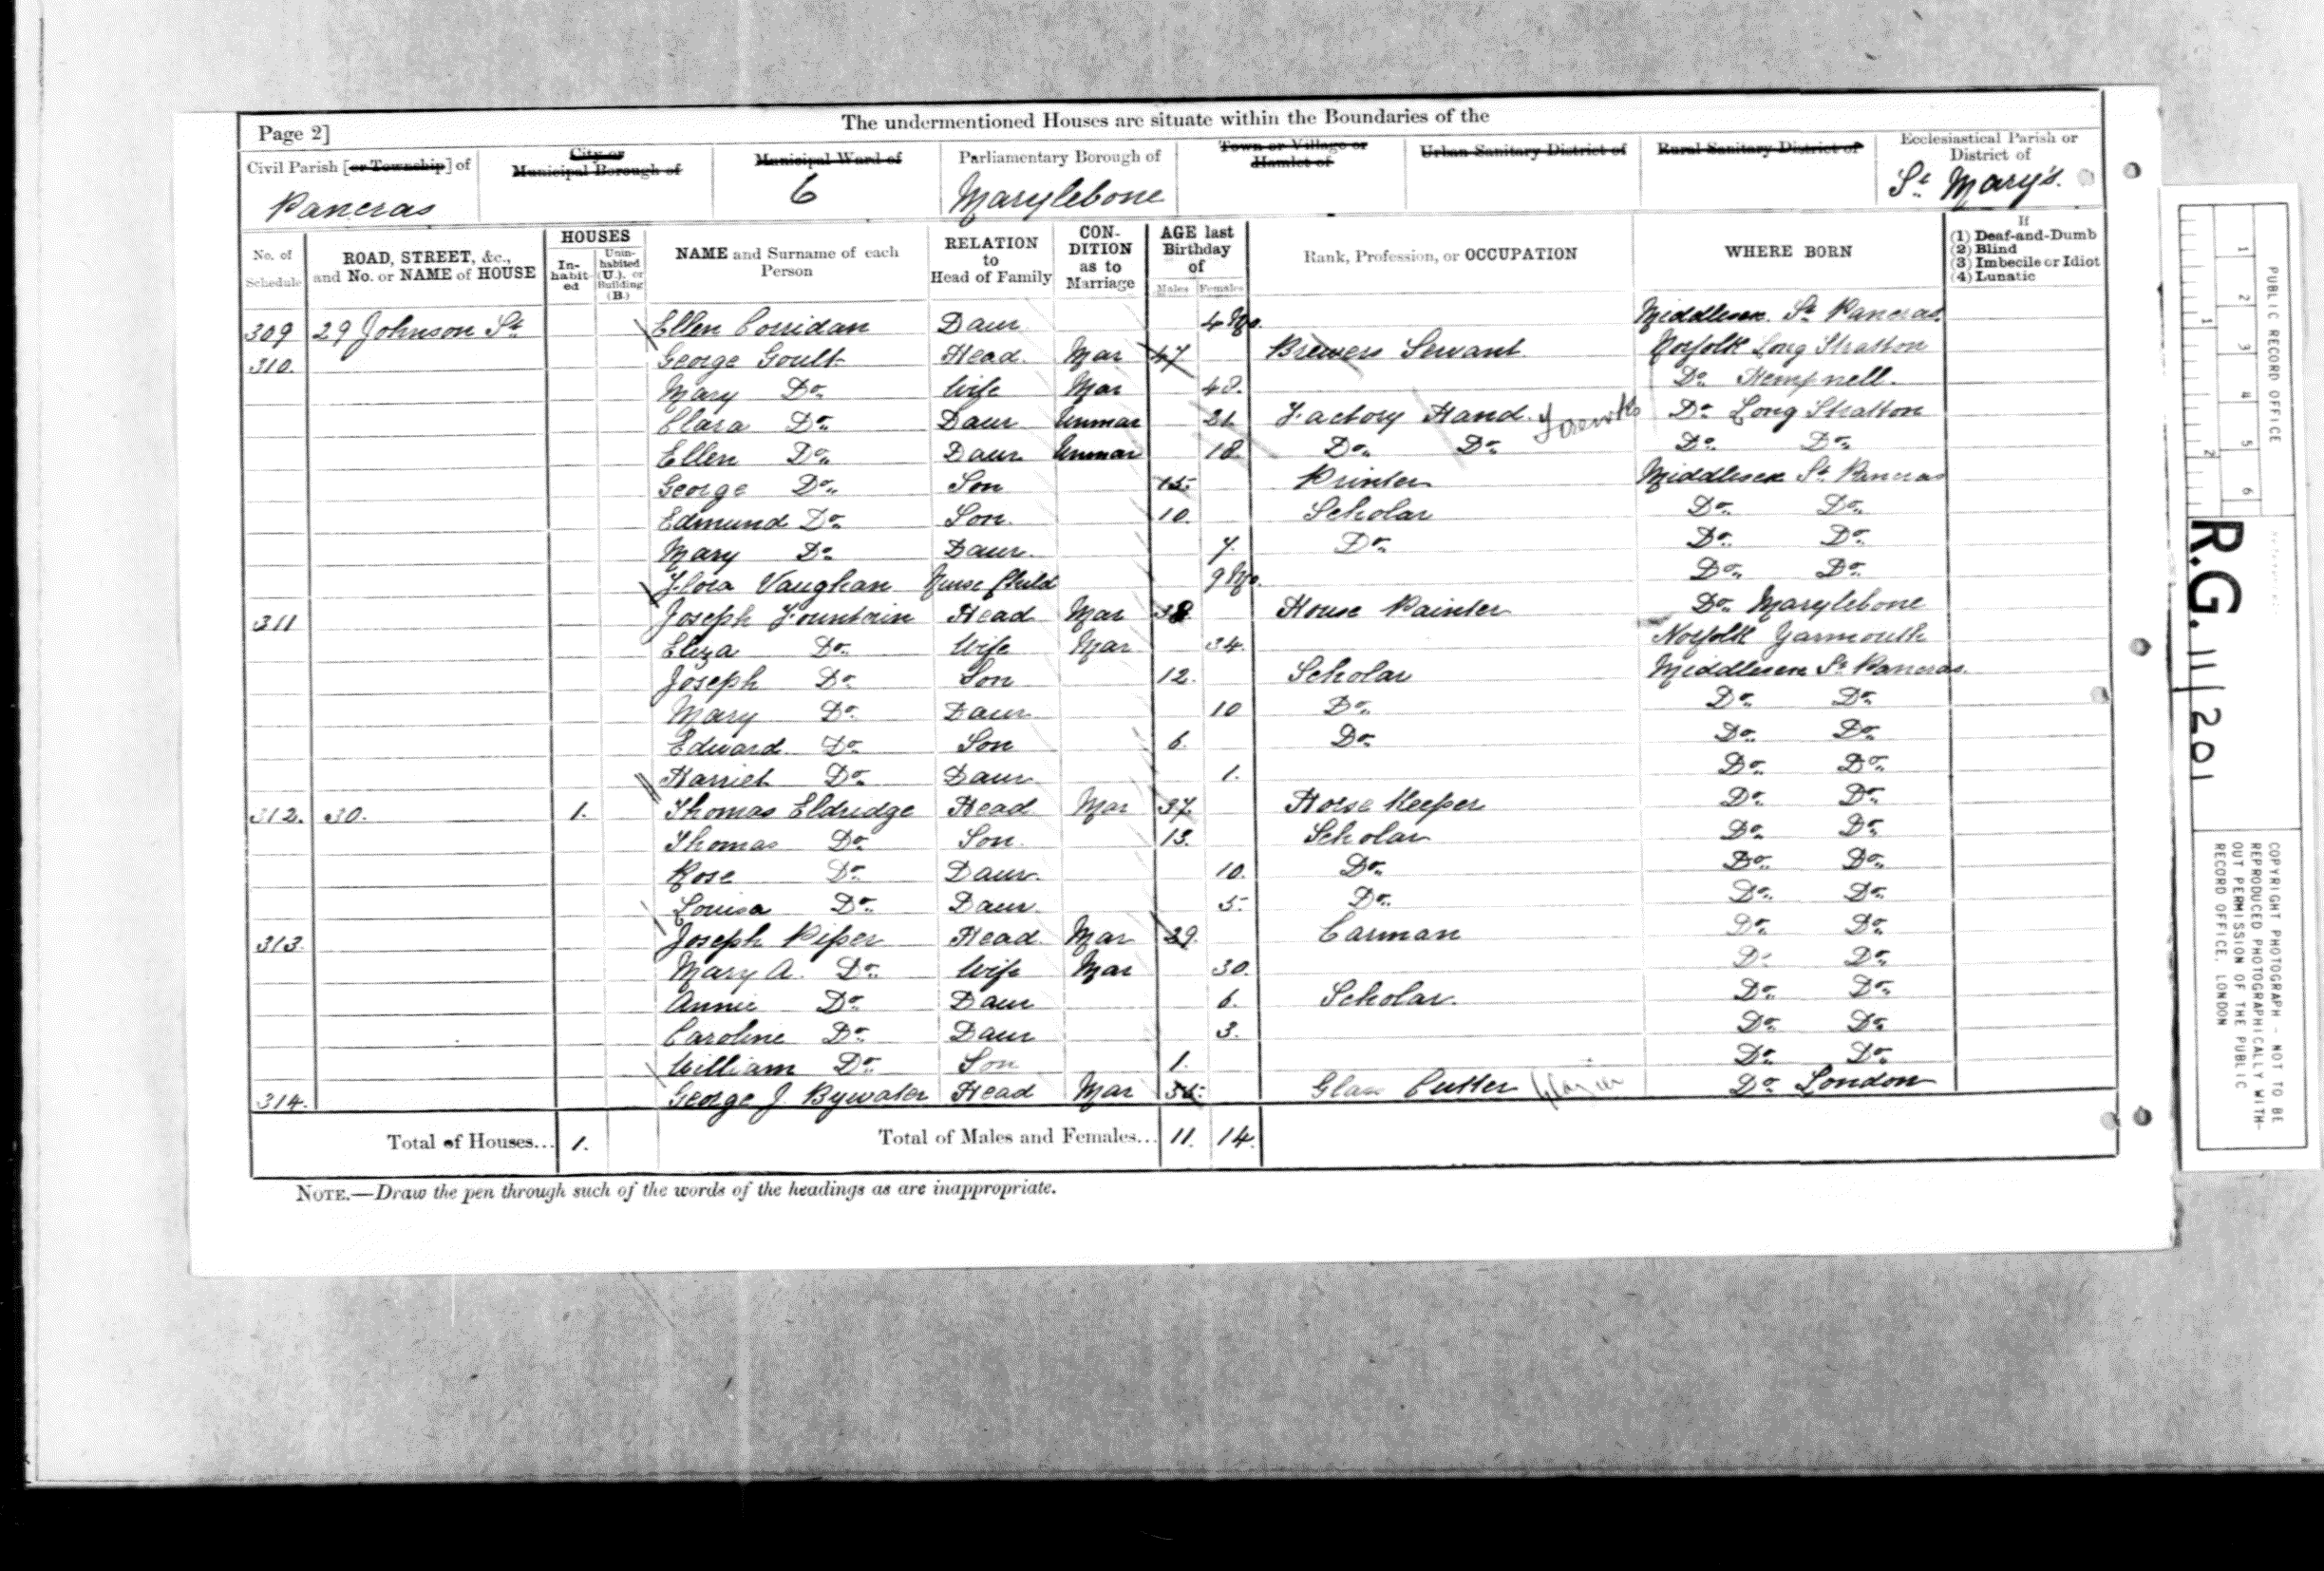 The undermentioned Houses are situate within the Boundaries of the
Page 2]
Civil Parish [or Township] of
City or Municipal Borough of
Municipal Ward of
Parliamentary Borough of
Town or Village or Hamlet of
Urban Sanitary District of
Rural Sanitary District of
Ecclesiastical Parish or District of
Pancras 6 Marylebone St Mary's.
No. of Schedule
ROAD, STREET, &c., and No. or NAME of HOUSE
HOUSES
In-habit-ed
Unin-habited (U.), or Building (B.)
NAME and Surname of each Person
RELATION to Head of Family
CON-DITION as to Marriage
AGE last Birthday of
Males Females
Rank, Profession, or OCCUPATION
WHERE BORN
If
(1) Deaf-and-Dumb
(2) Blind
(3) Imbecile or Idiot
(4) Lunatic
309 29 Johnson St Ellen Corridan Daur 4 Mo. Middlesex St Pancras
310. George Goult Head Mar 47 Brewers Servant Norfolk Long Stratton
Mary Do. Wife Mar 48. Do. Hempnell.
Clara Do. Daur Unmar 21 Factory Hand. Do. Long Stratton
Ellen Do. Daur Unmar 18 Do. Do. Do. Do.
George Do. Son 15. Printer Middlesex St Pancras
Edmund Do. Son. 10. Scholar Do. Do.
Mary Do. Daur. 7. Do. Do. Do.
Flora Vaughan Nurse Child 9 Mo. Do. Do.
311 Joseph Fountain Head Mar 38 House Painter Do. Marylebone
Eliza Do. Wife Mar 34. Norfolk Yarmouth
Joseph Do. Son 12. Scholar Middlesex St Pancras.
Mary Do. Daur 10 Do. Do. Do.
Edward Do. Son 6. Do. Do. Do.
Harriet Do. Daur 1. Do. Do.
312. 30. 1. Thomas Eldridge Head Mar 37. Horse Keeper Do. Do.
Thomas Do. Son. 13. Scholar Do. Do.
Rose Do. Daur. 10. Do. Do. Do.
Louisa Do. Daur. 5. Do. Do. Do.
313. Joseph Piper Head. Mar 29. Carman Do. Do.
Mary A. Do. Wife Mar 30. Do. Do.
Annie Do. Daur 6. Scholar. Do. Do.
Caroline Do. Daur 3. Do. Do.
William Do. Son 1. Do. Do.
314. George J. Bywater Head Mar Glass Cutter Do. London
Total of Houses... 1. Total of Males and Females... 11. 14.
NOTE.—Draw the pen through such of the words of the headings as are inappropriate.
PUBLIC RECORD OFFICE
1 2 3 4 5 6
1 2
R.G. 11/201
COPYRIGHT PHOTOGRAPH - NOT TO BE
REPRODUCED PHOTOGRAPHICALLY WITH-
OUT PERMISSION OF THE PUBLIC
RECORD OFFICE, LONDON